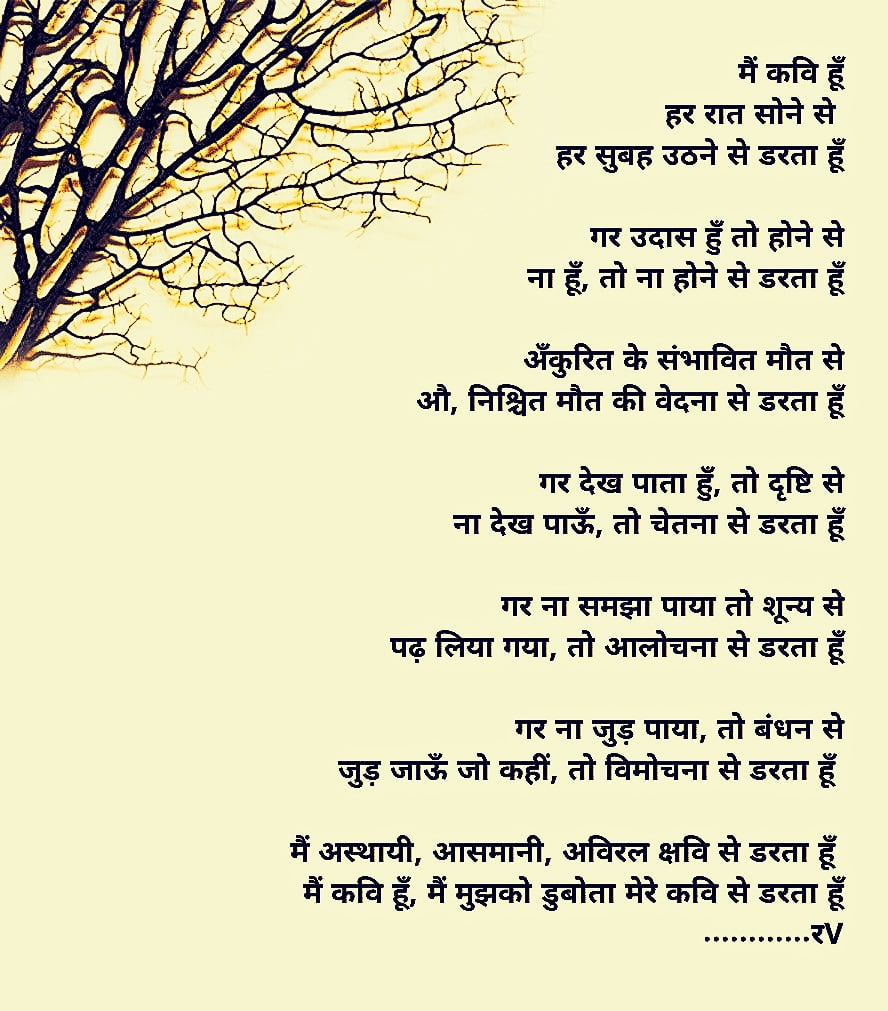 मैं कवि हूँ
हर रात सोने से
हर सुबह उठने से डरता हूँ
गर उदास हुँ तो होने से
ना हूँ, तो ना होने से डरता हूँ
अँकुरित के संभावित मौत से
औ, निश्चित मौत की वेदना से डरता हूँ
गर देख पाता हुँ, तो दृष्टि से
ना देख पाऊँ, तो चेतना से डरता हूँ
गर ना समझा पाया तो शून्य से
पढ़ लिया गया, तो आलोचना से डरता हूँ
गर ना जुड़ पाया, तो बंधन से
जुड़ जाऊँ जो कहीं, तो विमोचना से डरता हूँ
मैं अस्थायी, आसमानी, अविरल क्षवि से डरता हूँ
मैं कवि हूँ, मैं मुझको डुबोता मेरे कवि से डरता हूँ
............रV